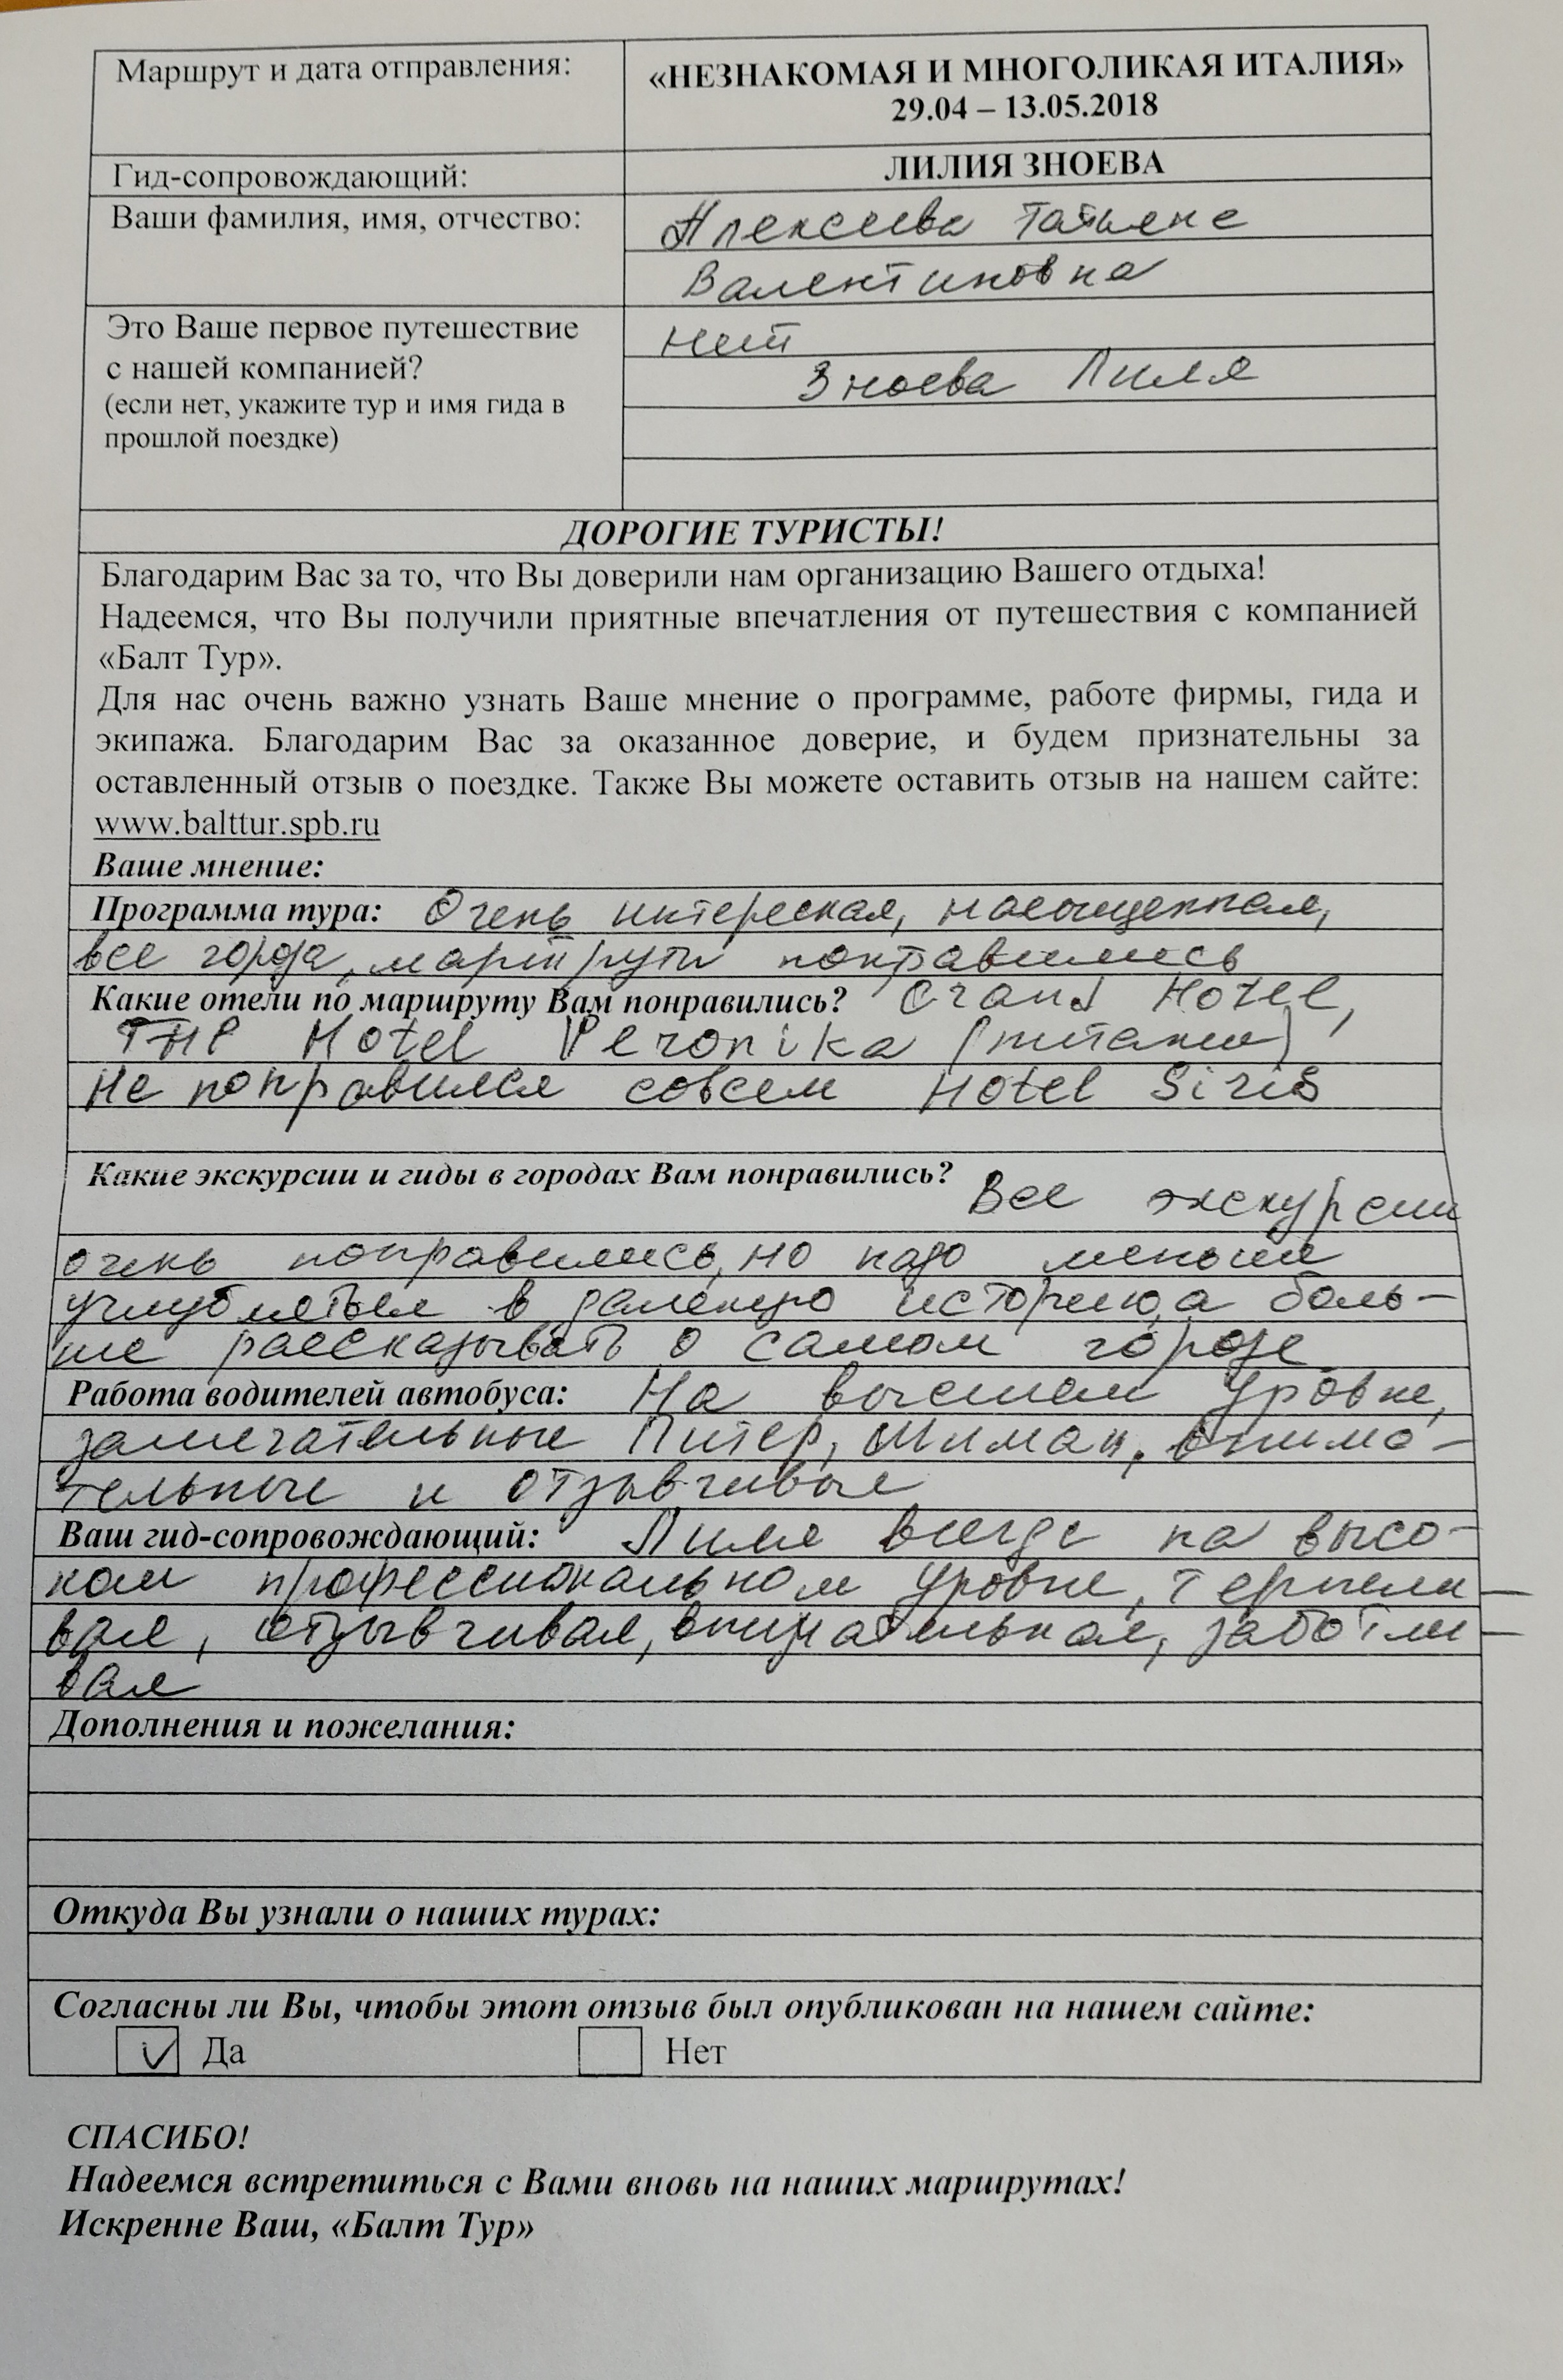 Маршрут и дата отправления:
«НЕЗНАКОМАЯ И МНОГОЛИКАЯ ИТАЛИЯ»
29.04 – 13.05.2018
Гид-сопровождающий:
ЛИЛИЯ ЗНОЕВА
Ваши фамилия, имя, отчество:
Алексеева Татьяна
Валентиновна
Это Ваше первое путешествие
с нашей компанией?
(если нет, укажите тур и имя гида в
прошлой поездке)
нет
Зноева Лиля
ДОРОГИЕ ТУРИСТЫ!
Благодарим Вас за то, что Вы доверили нам организацию Вашего отдыха!
Надеемся, что Вы получили приятные впечатления от путешествия с компанией
«Балт Тур».
Для нас очень важно узнать Ваше мнение о программе, работе фирмы, гида и
экипажа. Благодарим Вас за оказанное доверие, и будем признательны за
оставленный отзыв о поездке. Также Вы можете оставить отзыв на нашем сайте:
www.balttur.spb.ru
Ваше мнение:
Программа тура: Очень интересная, насыщенная,
все города, маршруты понравились
Какие отели по маршруту Вам понравились? Grand Hotel,
THP Hotel Veronika (питание)
Не понравился совсем Hotel Siris
Какие экскурсии и гиды в городах Вам понравились? Все экскурсии
очень понравились, но надо меньше
углубляться в далекую историю, а боль-
ше рассказывать о самом городе
Работа водителей автобуса: На высшем уровне,
замечательные Питер, Шиман, внима-
тельные и отзывчивые
Ваш гид-сопровождающий: Лиля всегда на высо-
ком профессиональном уровне, терпели-
вая, отзывчивая, внимательная, заботли-
вая
Дополнения и пожелания:
Откуда Вы узнали о наших турах:
Согласны ли Вы, чтобы этот отзыв был опубликован на нашем сайте:
V Да Нет
СПАСИБО!
Надеемся встретиться с Вами вновь на наших маршрутах!
Искренне Ваш, «Балт Тур»